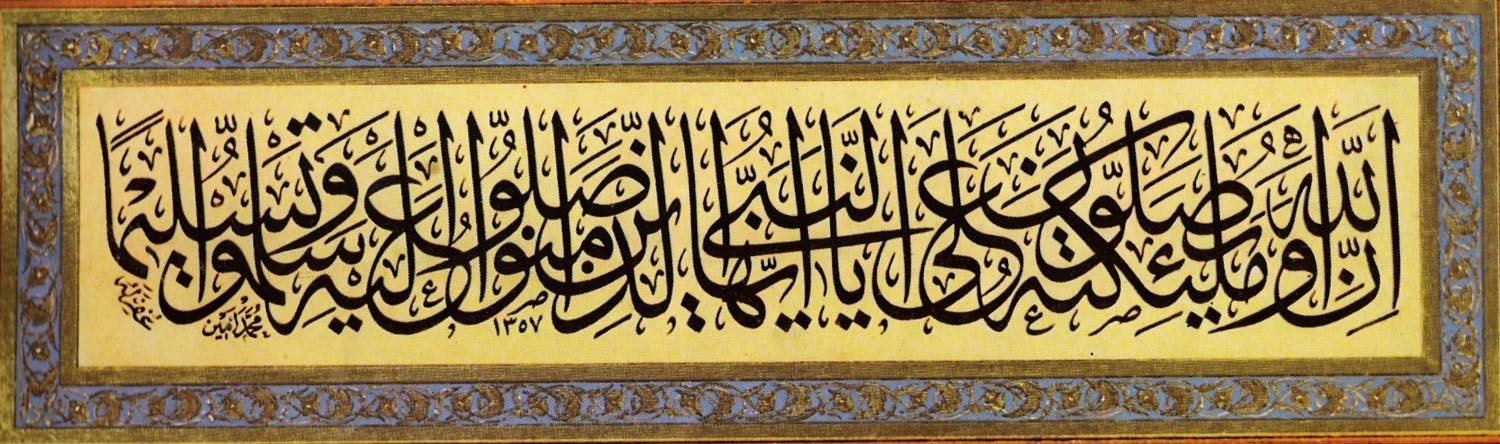 إن الله وملئكته يصلون على النبي يا أيها الذين آمنوا صلوا عليه وسلموا تسليما
محمد أمين
١٣٥٧